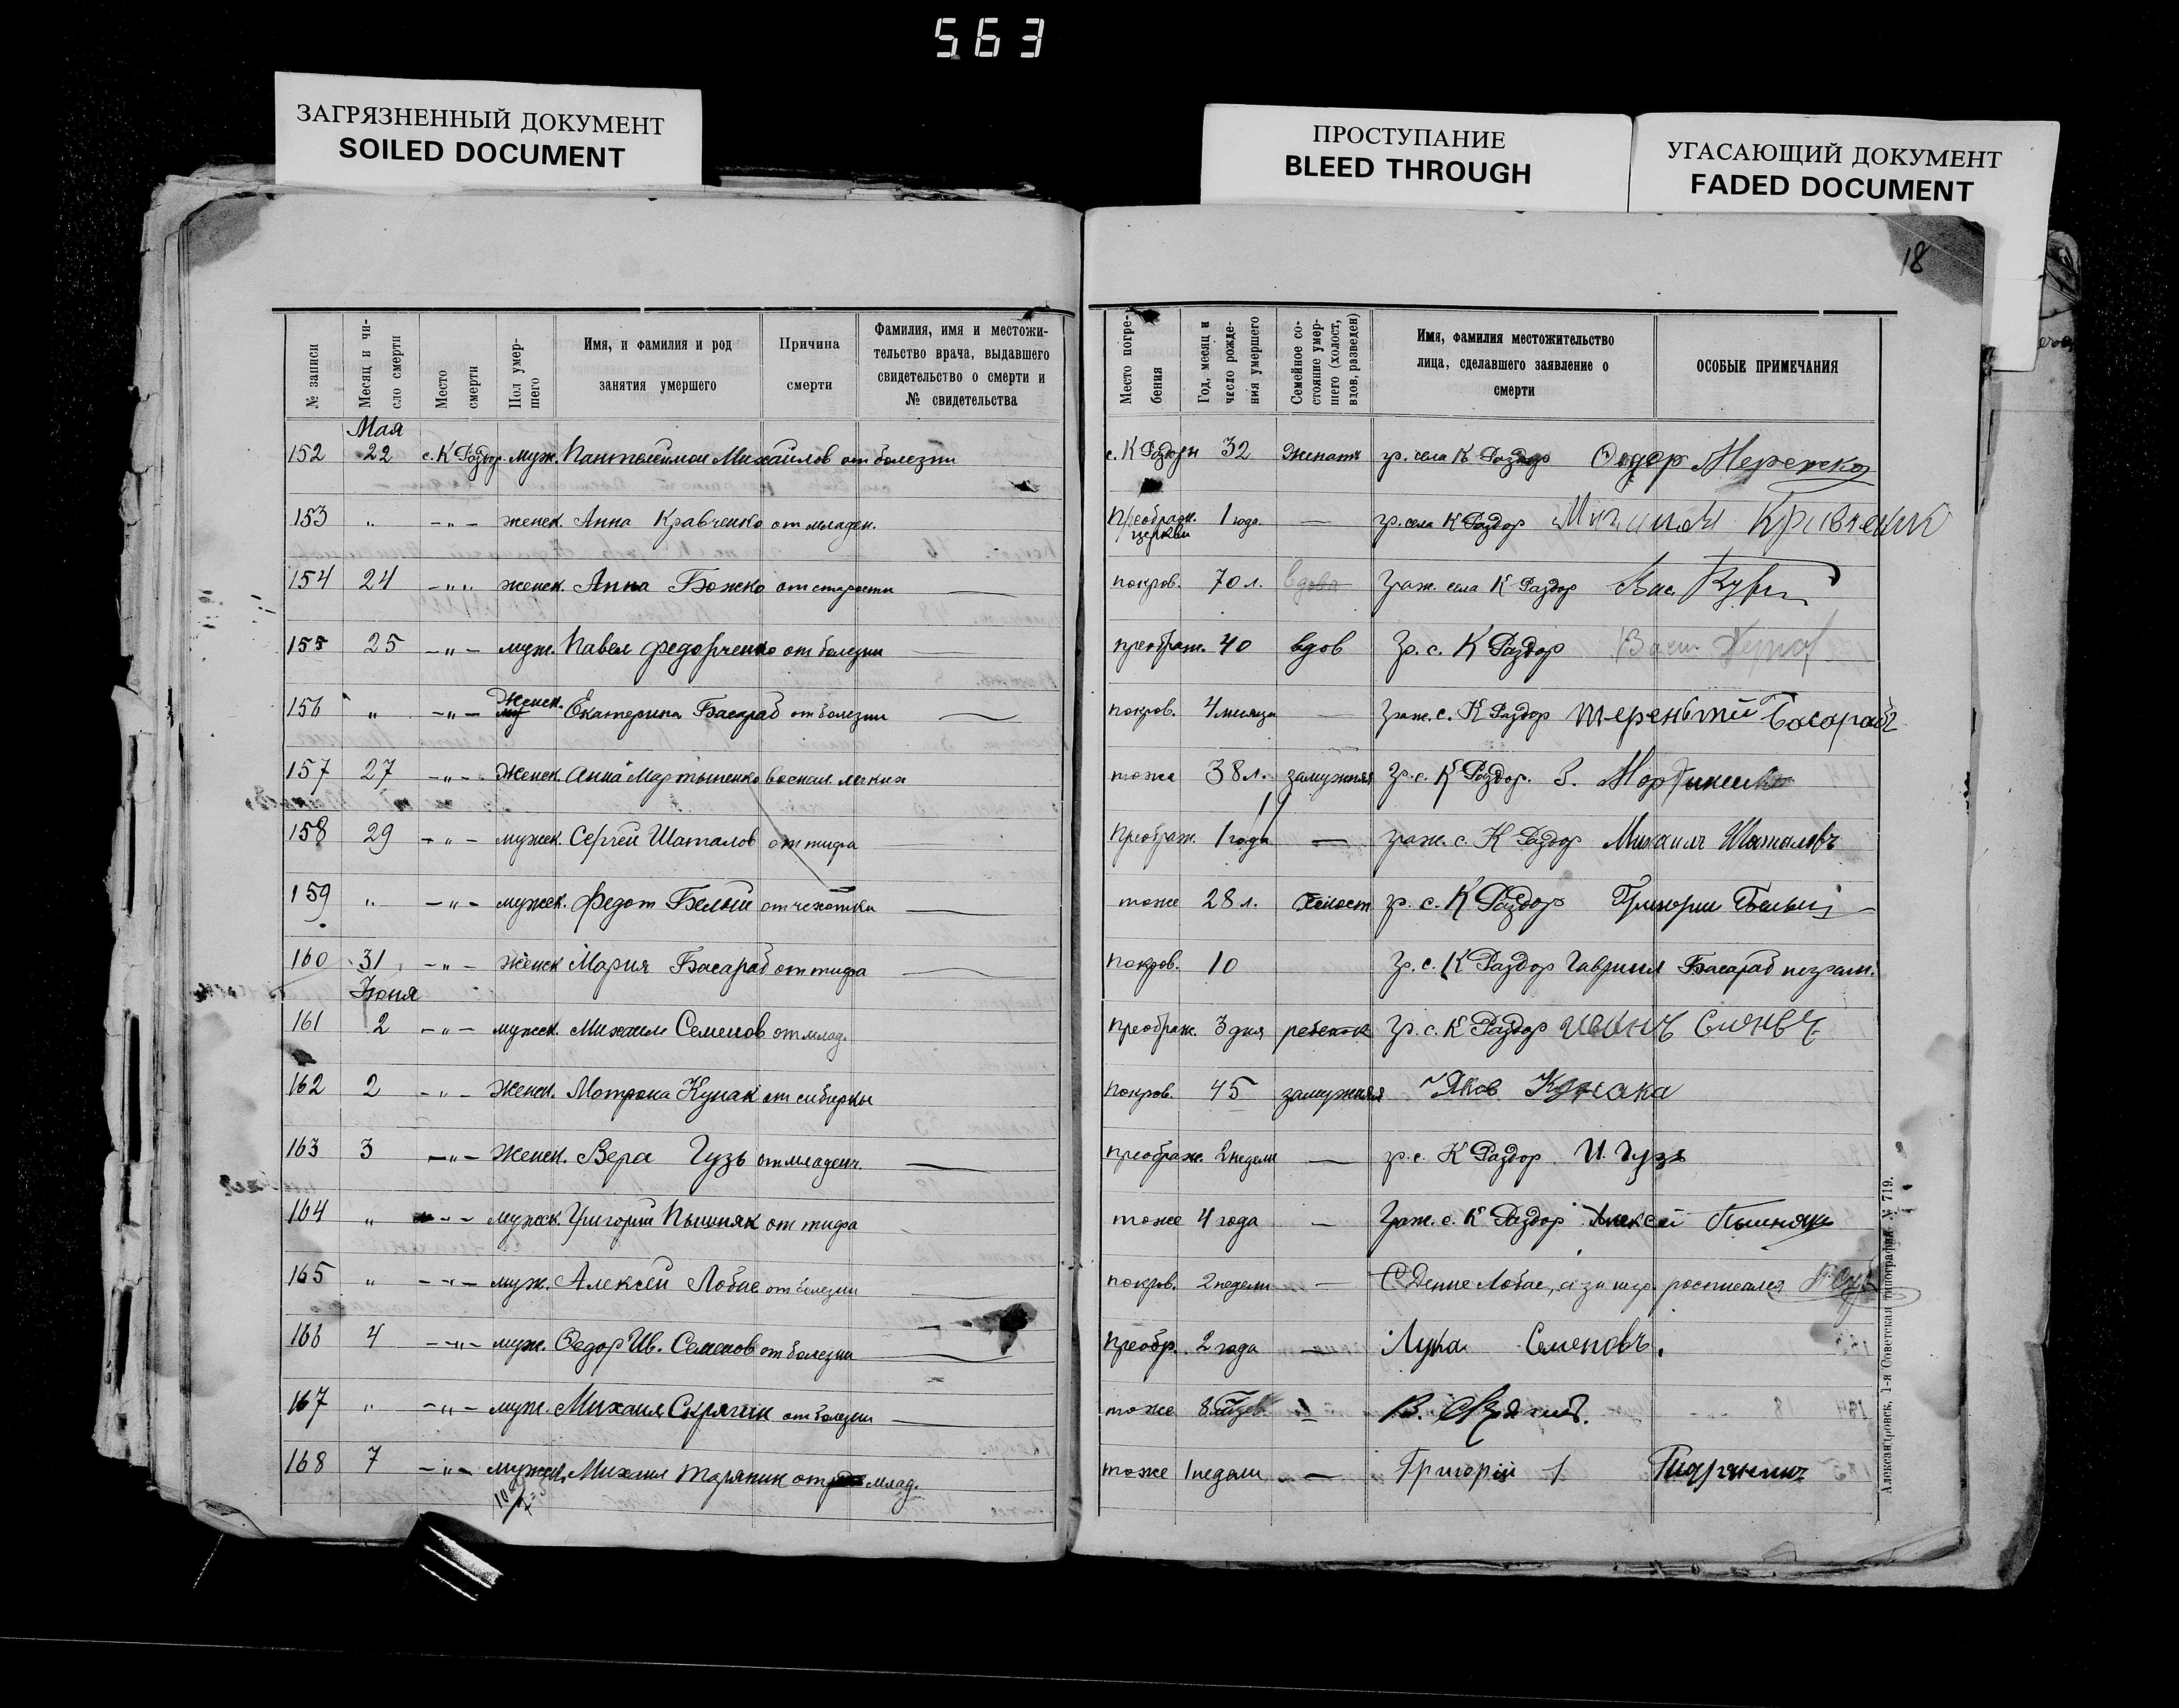 563
ЗАГРЯЗНЕННЫЙ ДОКУМЕНТ
SOILED DOCUMENT
ПРОСТУПАНИЕ
BLEED THROUGH
УГАСАЮЩИЙ ДОКУМЕНТ
FADED DOCUMENT
18
№ записи
Месяц и число смерти
Место смерти
Пол умершего
Имя, и фамилия и род занятия умершего
Причина смерти
Фамилия, имя и местожительство врача, выдавшего свидетельство о смерти и № свидетельства
Место погребения
Год, месяц и число рождения умершего
Семейное состояние умершего (холост, вдов, разведен)
Имя, фамилия местожительство лица, сделавшего заявление о смерти
ОСОБЫЕ ПРИМЕЧАНИЯ
Мая
152 22 с. К Раздор. муж. Пантелеимон Михайлов от болезни с. К Раздоры 32 женатъ гр. села К Раздор
153 " -"- женск. Анна Кравченко от младен. Преображ. церкви 1 года. — гр. села К Раздор
154 24 -"- женск. Анна Божко от старости — покров. 70 л. вдова Граж. села К Раздор
155 25 -"- муж. Павел Федорченко от болезни — преображ. 40 вдов Гр. с. К Раздор
156 " -"- Женск. Екатерина Басараб от болезни — покров. 4 месяца — Граж. с. К Раздор Терентий Басарабъ
157 27 -"- Женск. Анна Мартыненко воспал. легких тоже 38 л. замужняя Гр. с. К Раздор.
158 29 -"- мужск. Сергей Шаталов от тифа Преображ. 1 года — граж. с. К Раздор Михаилъ Шаталовъ
159 " -"- мужск. Федот Белый от чехотки — тоже 28 л. Холост гр. с. К Раздор Григории Белый
160 31 -"- женск Мария Басараб от тифа — Покров. 10 Гр. с. К Раздор Гавриил Басараб неграм.
Июня
161 2 -"- мужск. Михаил Семенов от млад. Преображ. 3 дня ребенок Гр. с. К Раздор Иванъ
162 2 -"- Женск. Мотрона Кунак от сибирки Покров. 45 замужняя Яков
163 3 -"- Женск. Вера Гузь от младенч. — преображ. 2 недели — гр. с. К Раздор И. Гузь
164 " -"- мужск. Григорий Пышняк от тифа тоже 4 года — Граж. с. К Раздор Алексей Пышнякъ
165 " -"- муж. Алексей Лобас от болезни — покров. 2 недели — Лобас, а за нег. росписался
166 4 -"- муж. Федор Ив. Семенов от болезни — Преобр. 2 года — Лука Семеновъ.
167 " -"- муж. Михаил от болезни — тоже 8
168 7 -"- мужск. Михаил Таряник от млад. тоже 1 недели — Григорій
Александровск, 1-я Советская типография. № 719.